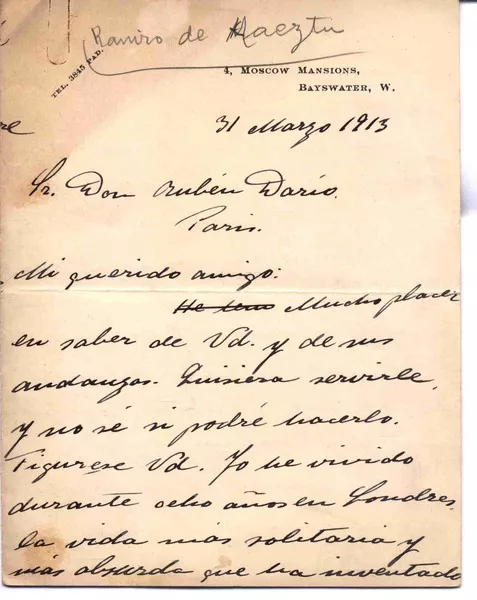 Ramiro de Maeztu
TEL. 3845 PAD.
4, MOSCOW MANSIONS,
BAYSWATER, W.
31 Marzo 1913
Sr. Don Rubén Darío.
Paris.
Mi querido amigo:
He ten Mucho placer
en saber de Vd. y de sus
andanzas. Quisiera servirle,
y no sé si podré hacerlo.
Figurese Vd. Yo he vivido
durante ocho años en Londres
la vida más solitaria y
más absurda que ha inventado